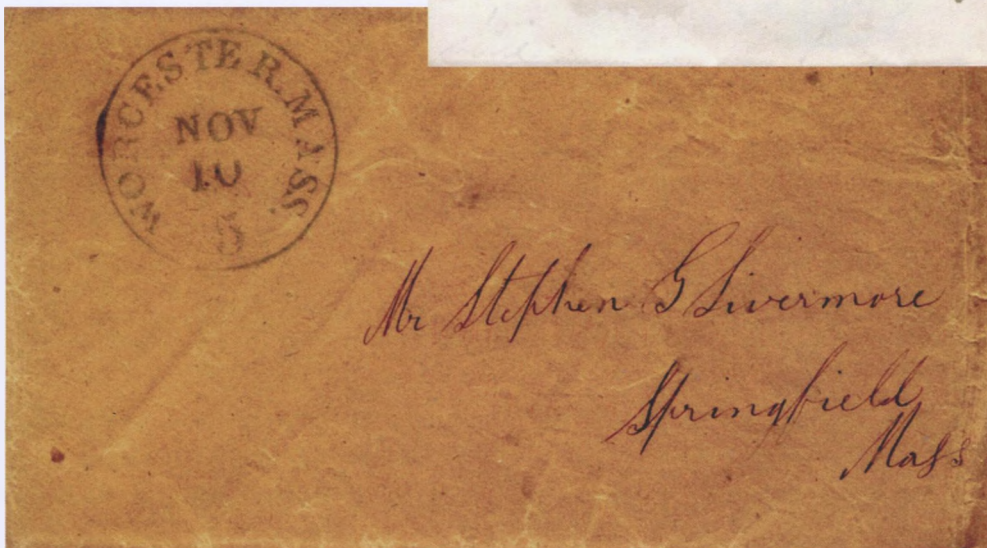 WORCESTER. MASS.
NOV
10
5
Mr Stephen G Livermore
Springfield
Mass